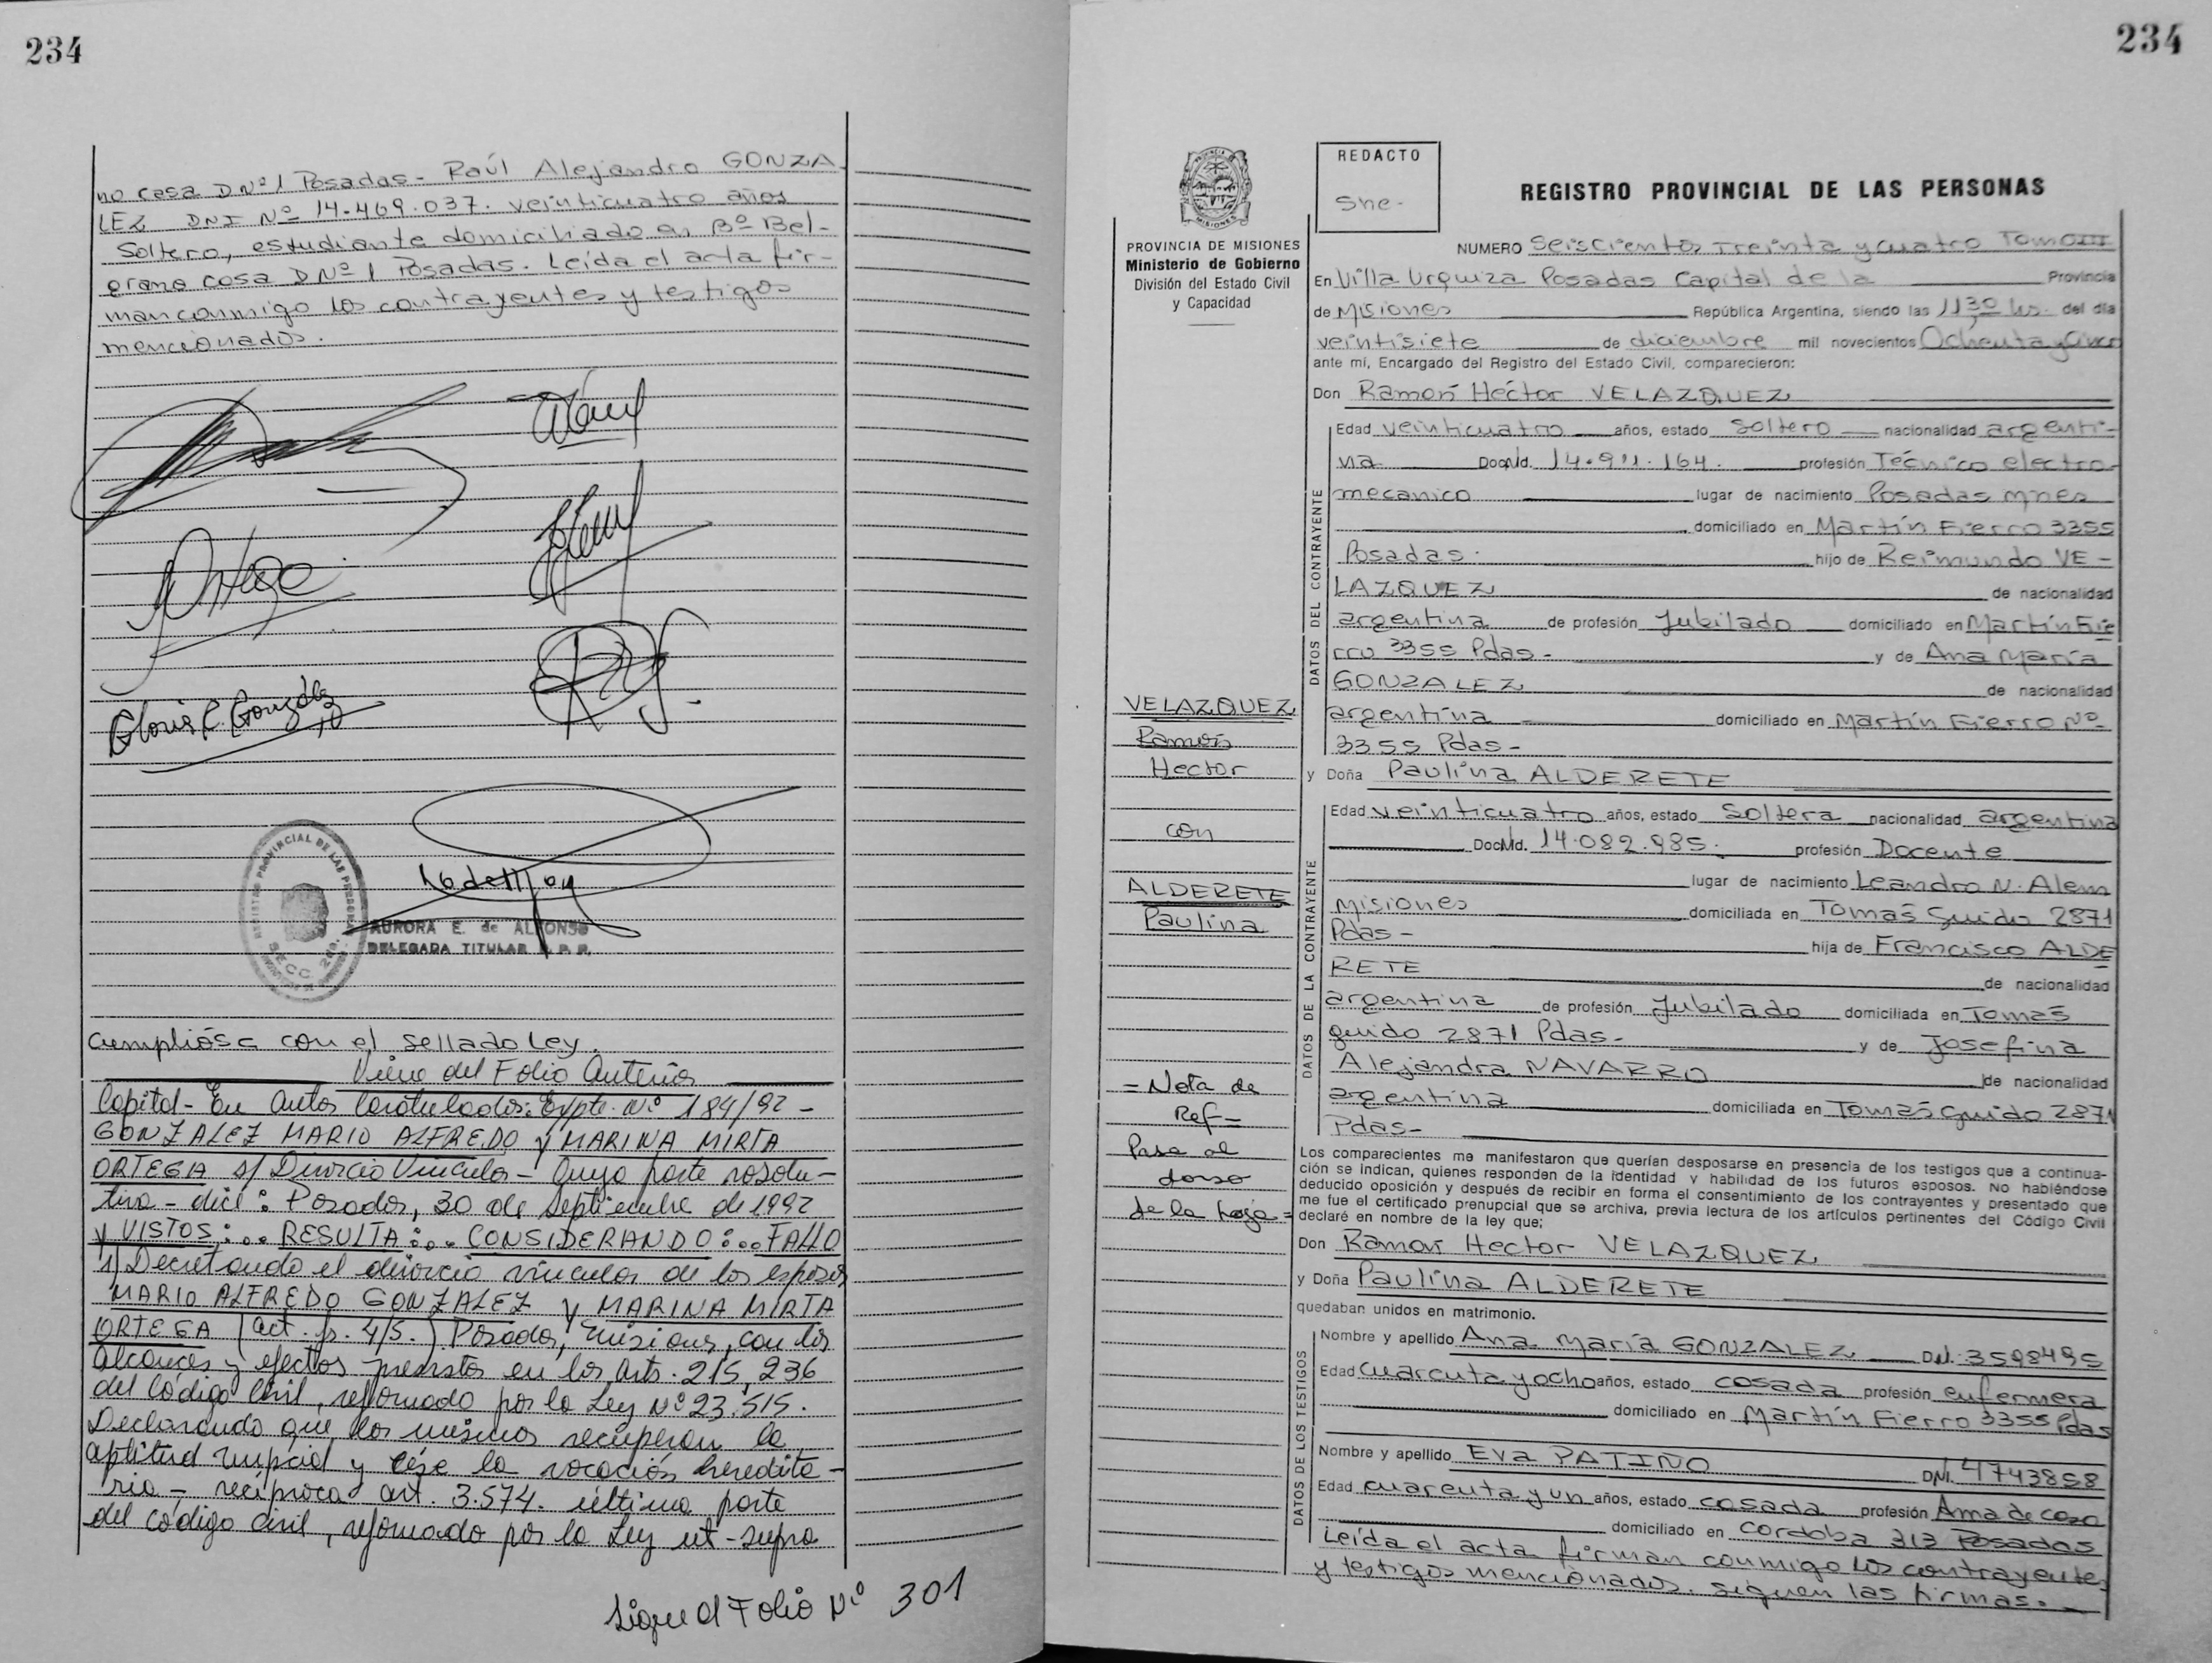 234
no casa D Nº 1 Posadas- Raúl Alejandro GONZA
LEZ DNI Nº 14.469.037. veinticuatro años
Soltero, estudiante domiciliado en Bº Bel-
grano casa D Nº 1 Posadas. Leída el acta fir-
man conmigo los contrayentes y testigos
mencionados.
Gloria C. González
REGISTRO PROVINCIAL DE LAS PERSONAS
SECC. 2da.
AURORA E. de ALFONSO
DELEGADA TITULAR R. P. P.
Cumplióse con el sellado Ley.
Viene del Folio Anterior
Capital- En autos Caratulados: Expte. Nº 184/92 -
GONZALEZ MARIO ALFREDO y MARINA MIRTA
ORTEGA s/ Divorcio Vincular - Cuya parte resolu-
tiva - dice: Posadas, 30 de Septiembre de 1992
Y VISTOS:... RESULTA:... CONSIDERANDO:... FALLO
1) Decretando el divorcio vincular de los esposos
MARIO ALFREDO GONZALEZ y MARINA MIRTA
ORTEGA (act. fs. 4/5.) Posadas, Misiones, con los
alcances y efectos previstos en los arts. 215, 236
del Código Civil, reformado por la Ley Nº 23.515.
Declarando que los mismos recuperan la
aptitud nupcial y cese la vocación heredita-
ria - recíproca art. 3.574. última parte
del código civil, reformado por la Ley ut-supra
Sigue al Folio Nº 301
234
PROVINCIA DE MISIONES
Ministerio de Gobierno
División del Estado Civil
y Capacidad
REDACTO
Sne-
REGISTRO PROVINCIAL DE LAS PERSONAS
NUMERO Seiscientos Treinta y cuatro Tomo III
En Villa Urquiza Posadas Capital de la Provincia
de Misiones República Argentina, siendo las 11,30 hs. del día
veintisiete de diciembre mil novecientos Ochenta y Cinco
ante mí, Encargado del Registro del Estado Civil, comparecieron:
Don Ramón Héctor VELAZQUEZ
DATOS DEL CONTRAYENTE
Edad veinticuatro años, estado Soltero nacionalidad argenti-
na Doc. Nd. 14.911.164. profesión Técnico electro-
mecanico lugar de nacimiento Posadas Mnes
domiciliado en Martín Fierro 3355
Posadas. hijo de Reimundo VE-
LAZQUEZ de nacionalidad
argentina de profesión Jubilado domiciliado en Martín Fie
rro 3355 Pdas- y de Ana María
GONZALEZ de nacionalidad
argentina domiciliado en Martín Fierro Nº
3355 Pdas-
y Doña Paulina ALDERETE
DATOS DE LA CONTRAYENTE
Edad veinticuatro años, estado Soltera nacionalidad argentina
Doc. Nd. 14.082.985. profesión Docente
lugar de nacimiento Leandro N. Alem
Misiones domiciliada en Tomás Guido 2871
Pdas- hija de Francisco ALDE
RETE de nacionalidad
argentina de profesión Jubilado domiciliada en Tomás
guido 2871 Pdas- y de Josefina
Alejandra NAVARRO de nacionalidad
argentina domiciliada en Tomás Guido 2871
Pdas-
VELAZQUEZ
Ramón
Hector
con
ALDERETE
Paulina
= Nota de
Ref =
Pasa al
dorso
de la hoja =
Los comparecientes me manifestaron que querían desposarse en presencia de los testigos que a continua-
ción se indican, quienes responden de la identidad y habilidad de los futuros esposos. No habiéndose
deducido oposición y después de recibir en forma el consentimiento de los contrayentes y presentado que
me fue el certificado prenupcial que se archiva, previa lectura de los artículos pertinentes del Código Civil
declaré en nombre de la ley que;
Don Ramón Hector VELAZQUEZ
y Doña Paulina ALDERETE
quedaban unidos en matrimonio.
DATOS DE LOS TESTIGOS
Nombre y apellido Ana María GONZALEZ DNI. 3598495
Edad Cuarenta y ocho años, estado casada profesión enfermera
domiciliado en Martín Fierro 3355 Pdas
Nombre y apellido Eva PATIÑO DNI. 4743858
Edad cuarenta y un años, estado casada profesión Ama de casa
domiciliado en cordoba 313 Posadas
Leída el acta firman conmigo los contrayentes
y testigos mencionados. siguen las firmas.-